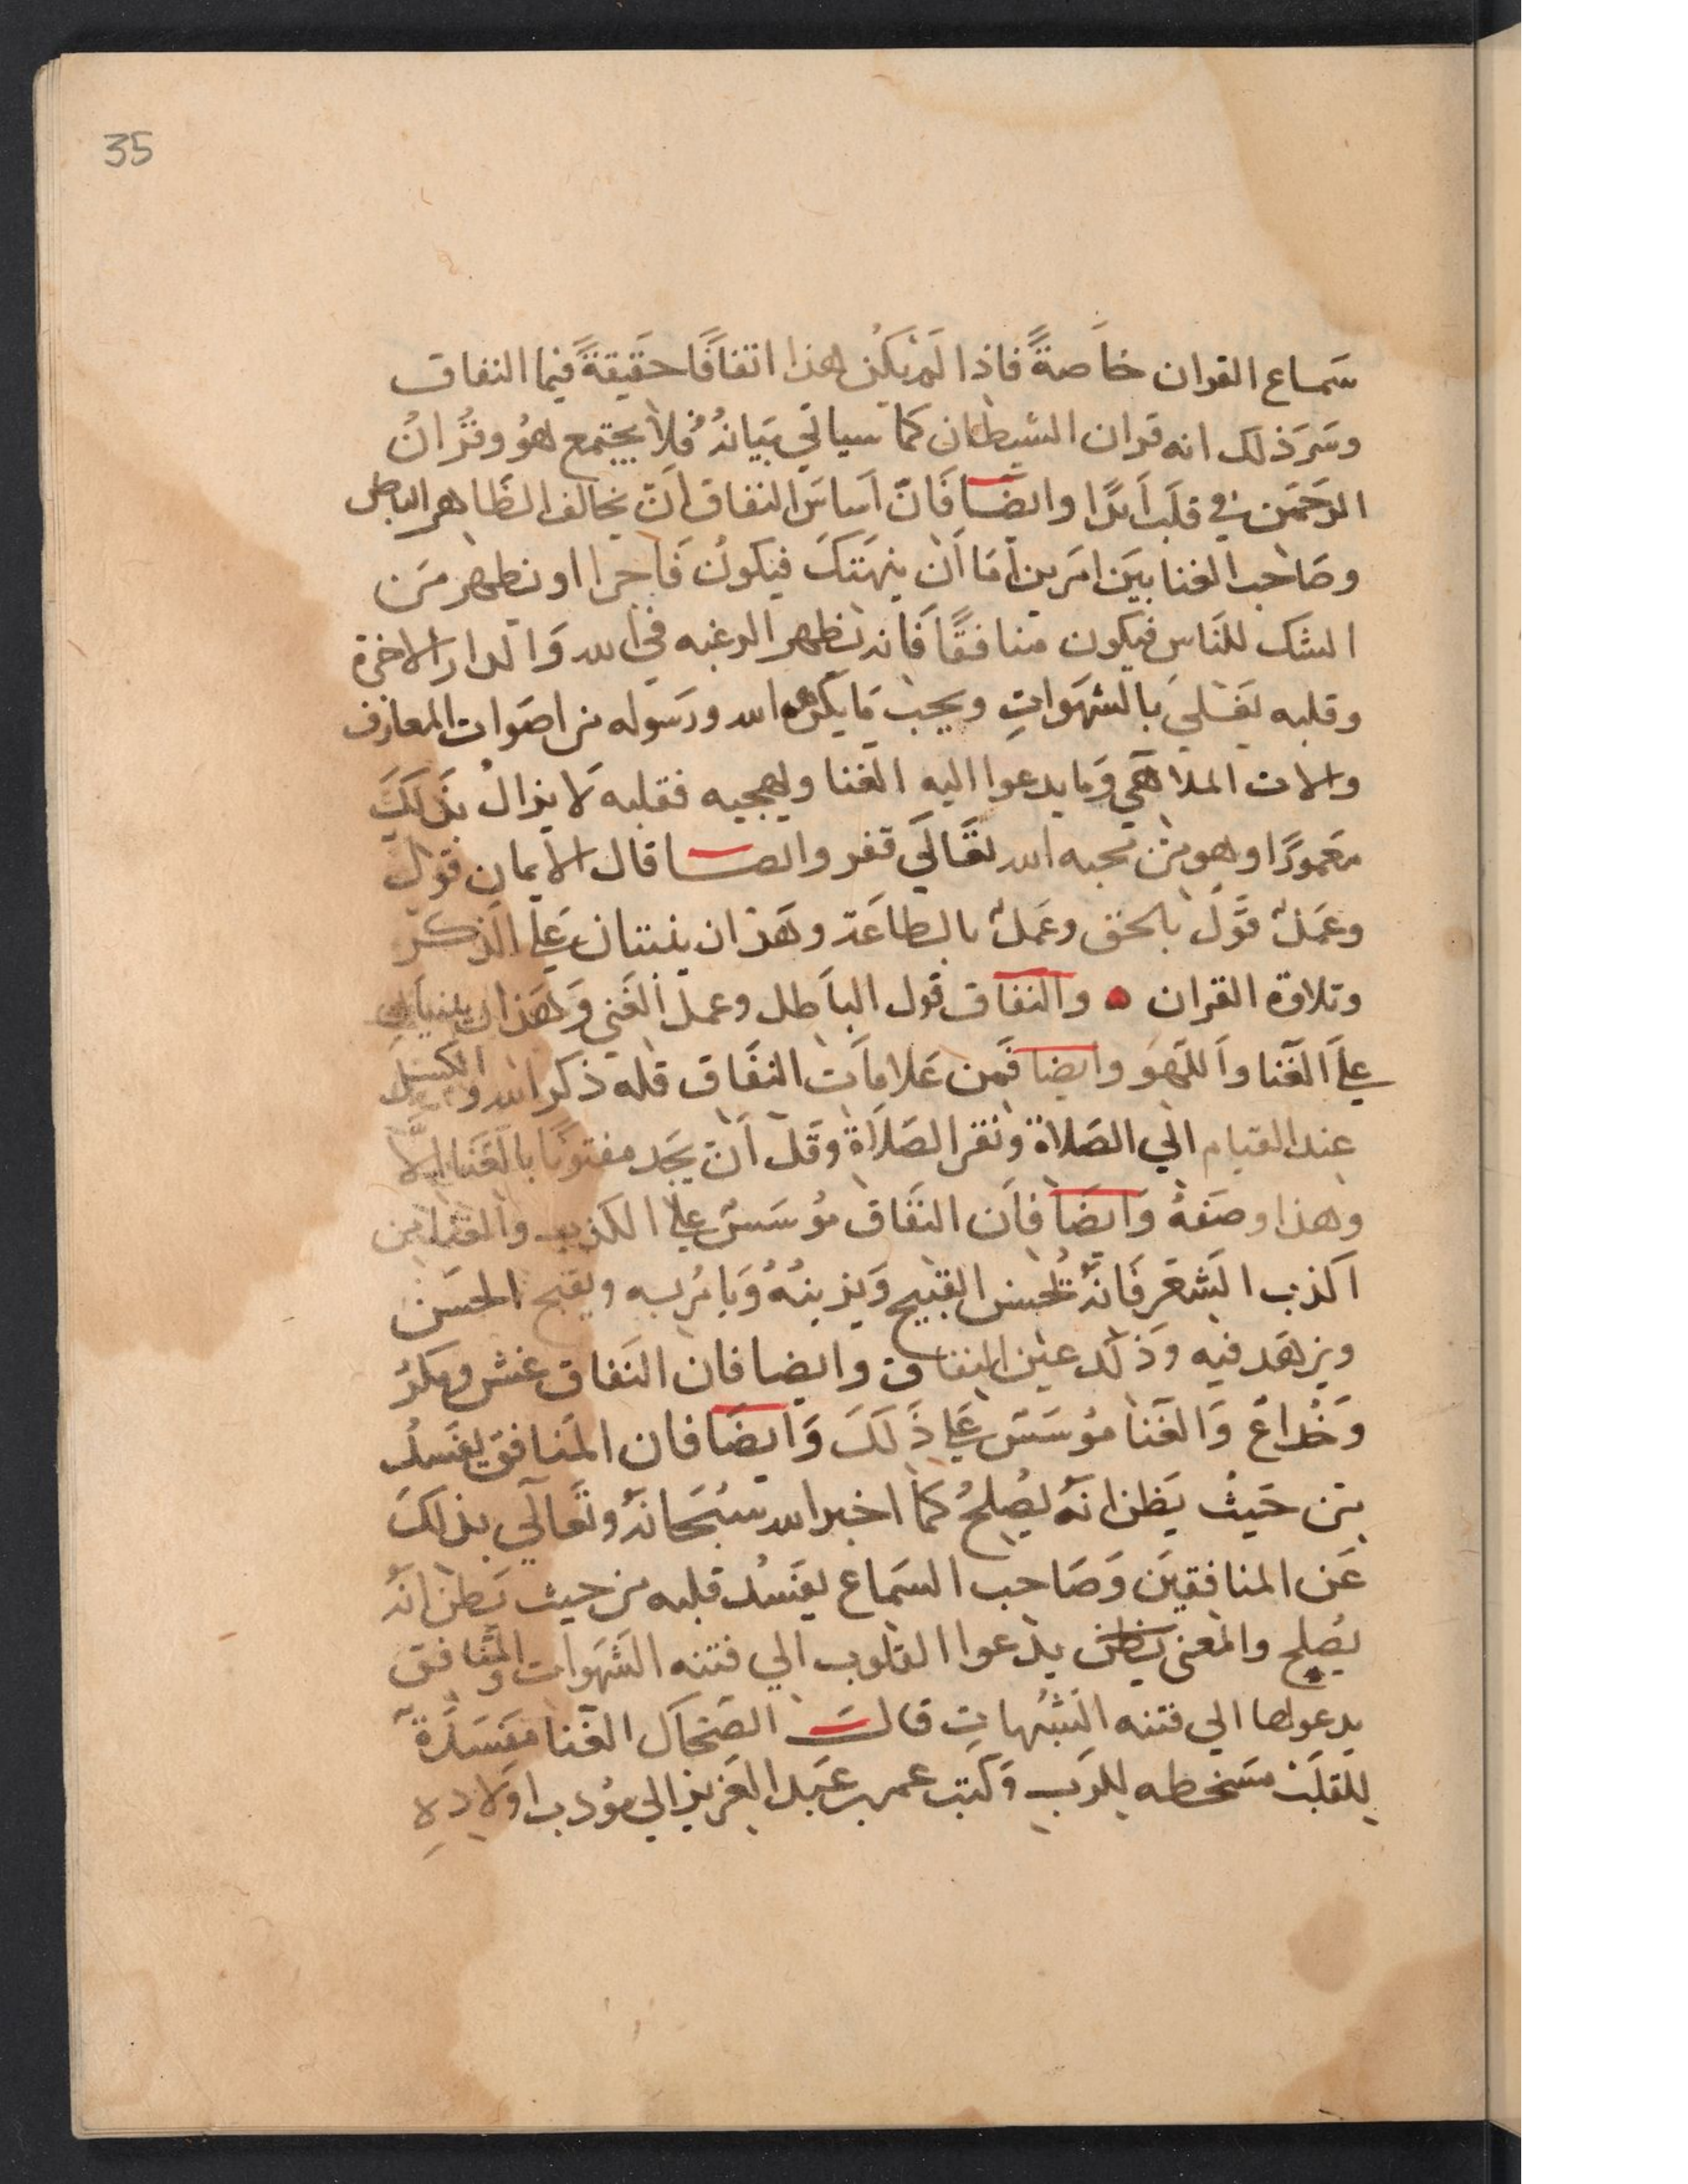 35
سَماع القران خاَصةً فاذا لَم يَكُن هذا اتفاقًا حَقيقةً فيما النفاق
وسَرَ ذلك انه قران الشيطان كما سياتي بَيَانُهُ فَلا يجتمع هوُ وقُرانُ
الرَحَمَن في قلَب اَبدًا وايضًا فَانّ اَساسَ النفاق اَنَ يخالف الظَاهر الباطن
وصَاحب الغنا بيَن امَرين اَمَا اَن ينهَتكَ فيكونُ فَاجرا او يظهر مَن
الشك للنَاسِ فيكون منافقًا فَانه يُظهر الرغبه في الله وَالدار الاخرة
وقلبه يَغَليَ بالشهَواتِ ويحب مَا يكرهه الله ورَسوله من اصَوات المعازف
والات الملاهي وَما يدعوا اليه الغنا ويهجيه فقلبه لا يزالُ بذَلَكَ
معَمورًا وهو من محبه الله تَعَالَي قفر وايضـــا قال الايمان قَول
وعَملُ قَولَ بالحق وعَملُ بالطاعَة وهَذان ينبتان عَلي الذكَر
وتلاوة القران • والنفاق قول الباَطل وعملَ الغَي وَهَذان ينبتان
علَي الغَنا واَللَهوَ وايضا فَمن عَلامَات النفَاق قله ذكر الله والكسل
عند القيام الَي الصَلاة ونقر الصَلاَة وقَلَ اَن يجَد مفتونًا بالغَنا اِلَّا
وهذا وصَفهُ وَايضَا فاَن النفَاق مُوسَسَ علي الكذب والغنا من
اكذب الشعَر فَانَّهُ يُحسن القبيح وَيزينُهُ وَيامُر به ويقبح الحسَن
ويزهَد فيه وذَلك عيَن النفاق وايضا فان النَفاق غش ومكرُ
وَخُداعُ وَالغَنا مُوسَسَ عَلي ذَلَكَ وَايضَا فان المَنافق يفسدُ
مَن حَيثُ يَظن انَهُ يُصلحُ كمَا اخبر الله سُبحَانهُ وتَعالَي بذلكَ
عَن المنافقيَن وَصَاحب السَماع يفسدُ قلبه من حيث يَظن انَهُ
يُصلح والمغني يدعوا القلوب الي فتنه الشَهوات والمنافق
يدعولها الي فتنه الشُبُهاتِ قالـــَ الضَحاَك الغَنا مَفسَدَةٌ
للقلَب مسَخطه للرَب وَكتب عمر بن عَبد العَزيز الي مُودب اوَلاده